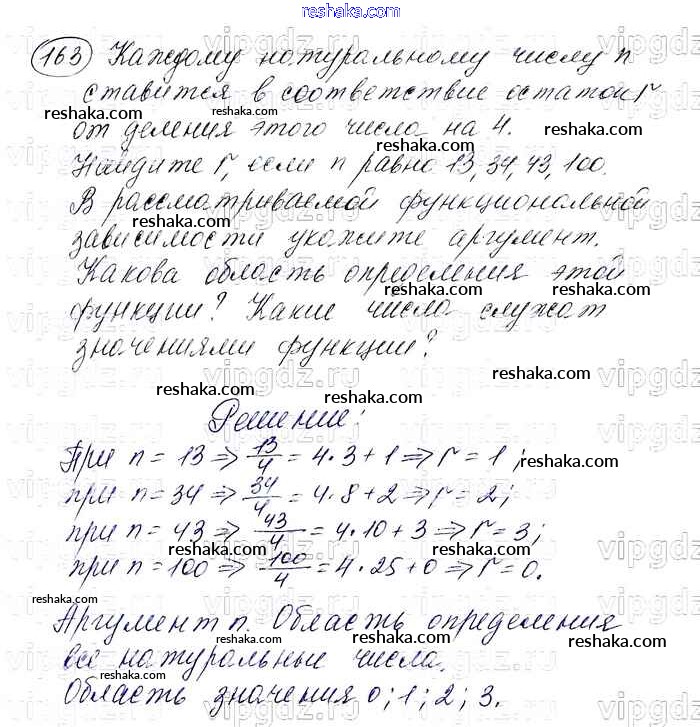 reshaka.com
163 Каждому натуральному числу n
ставится в соответствие остаток r
от деления этого числа на 4.
Найдите r, если n равно 13, 34, 43, 100.
В рассматриваемой функциональной
зависимости укажите аргумент.
Какова область определения этой
функции? Какие числа служат
значениями функции?
Решение:
При n = 13 ⇒ 13/4 = 4·3+1 ⇒ r = 1;
при n = 34 ⇒ 34/4 = 4·8+2 ⇒ r = 2;
при n = 43 ⇒ 43/4 = 4·10+3 ⇒ r = 3;
при n = 100 ⇒ 100/4 = 4·25+0 ⇒ r = 0.
Аргумент n. Область определения
все натуральные числа.
Область значения 0; 1; 2; 3.